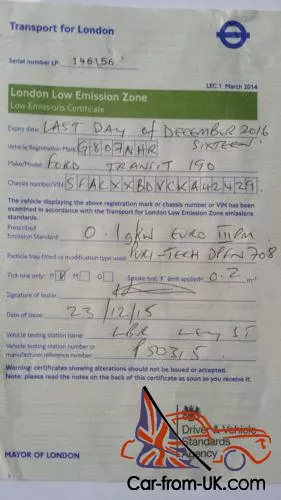 Transport for London
Serial number LP: 146156
LEC 1 March 2014
London Low Emission Zone
Low Emissions Certificate
Expiry date: LAST DAY of DECEMBER 2016
SIXTEEN
Vehicle Registration Mark G807NHR
Make/Model FORD TRANSIT 190
Chassis number/VIN SFACXXBDVCKA42429
The vehicle displaying the above registration mark or chassis number or VIN has been
examined in accordance with the Transport for London Low Emission Zone emissions
standards.
Prescribed
Emission Standard 0.1gKW EURO III PM
Particle trap fitted or modification type used: PURI-TECH DPFN 708
Tick one only: P M G Smoke test 'K' limit applied= 0.2 m-1
Signature of tester
Date of issue: 23/12/15
Vehicle testing station name:
Vehicle testing station number or
manufacturer reference number: P50315
Warning: certificates showing alterations should not be issued or accepted.
Note: please read the notes on the back of this certificate as soon as you receive it.
Driver & Vehicle
Standards
Agency
MAYOR OF LONDON
Car-from-UK.com